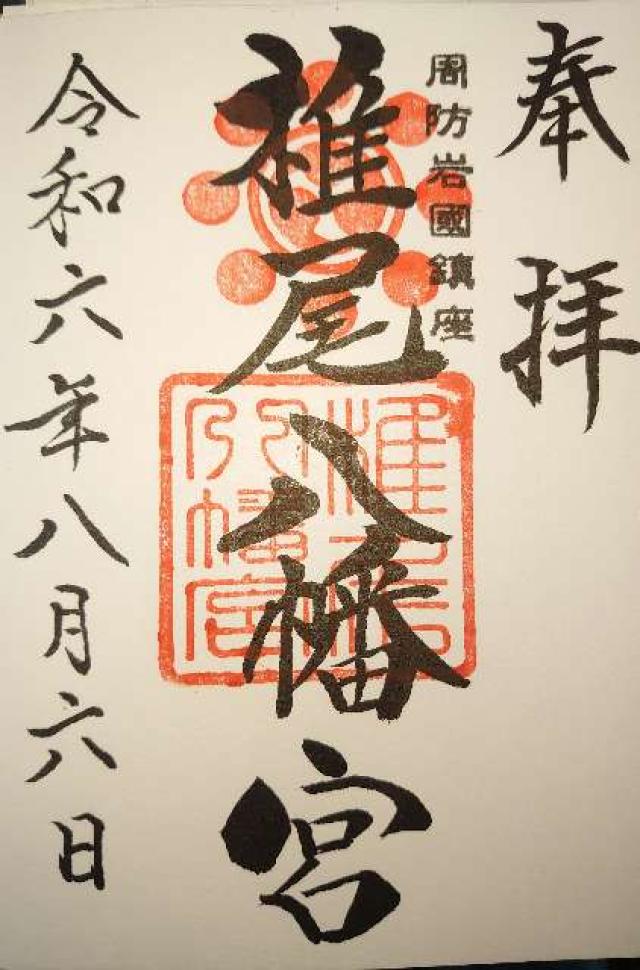 奉拝
周防岩國鎮座
椎尾八幡宮
椎尾八幡宮
令和六年八月六日